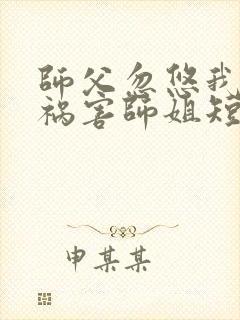 師父忽悠我
祸害師姐短
申某某